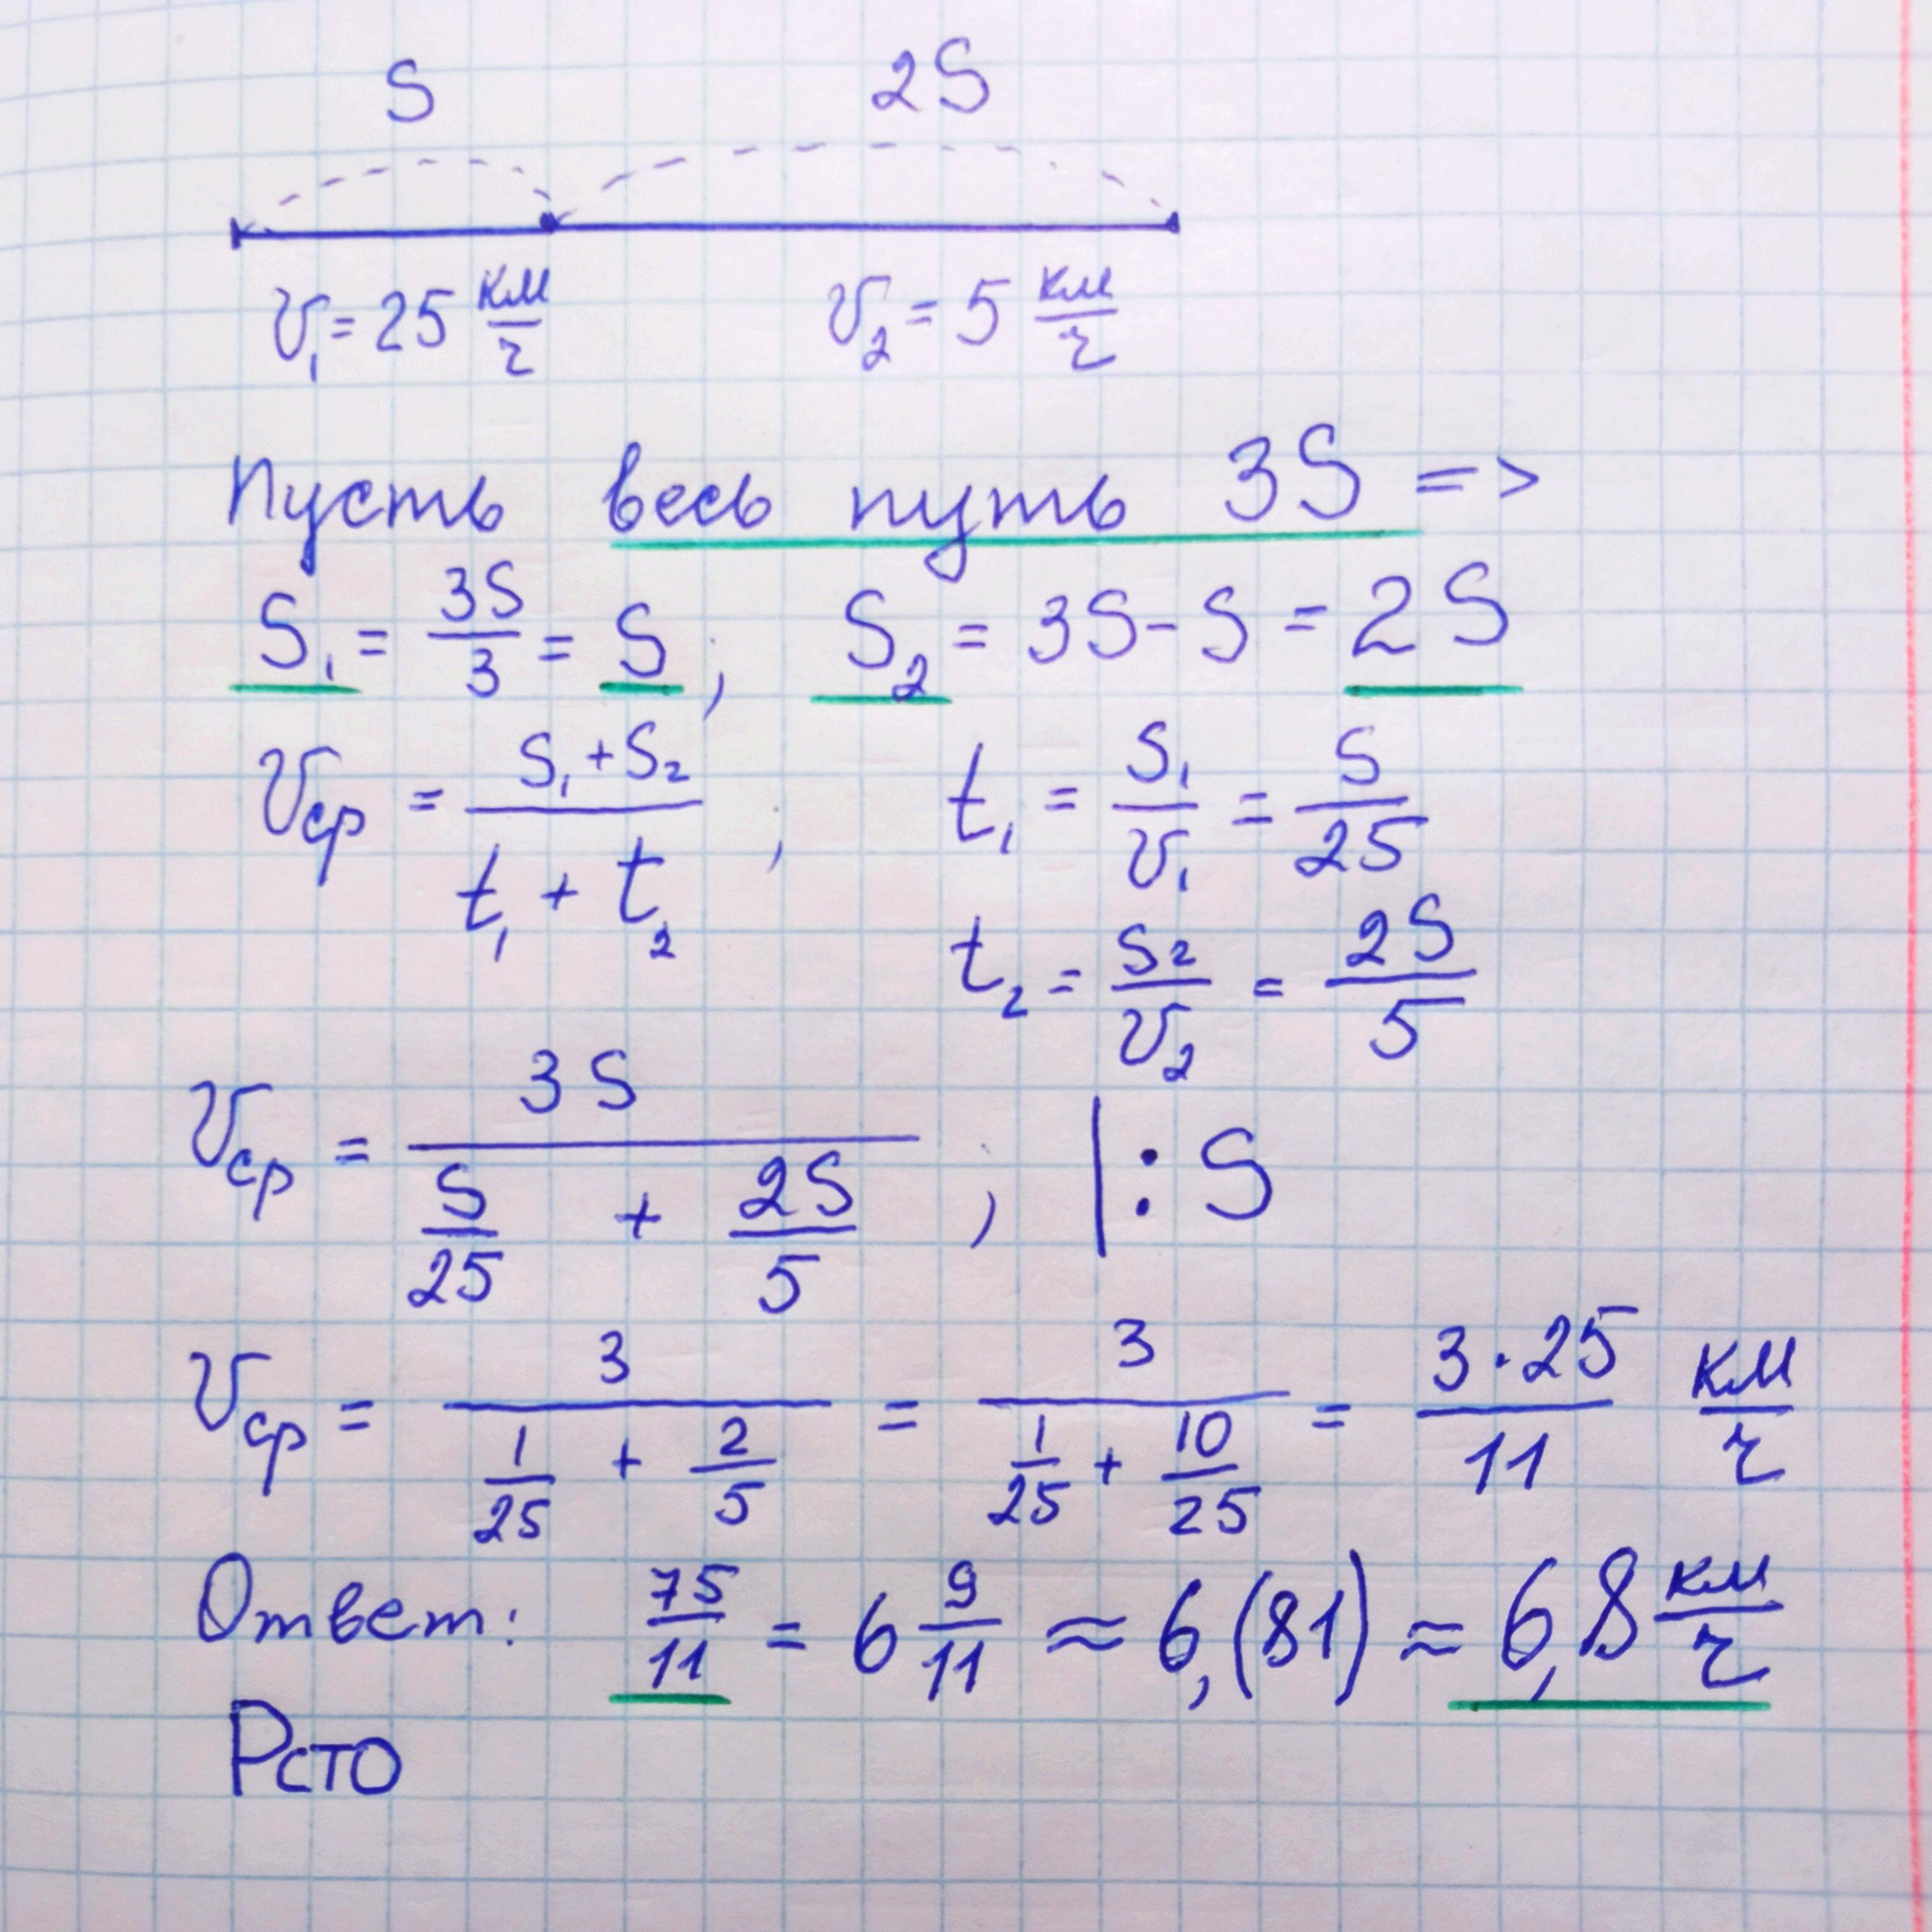 S 2S
v₁ = 25 км/ч v₂ = 5 км/ч
Пусть весь путь 3S =>
S₁ = 3S/3 = S ; S₂ = 3S - S = 2S
v_ср = (S₁ + S₂)/(t₁ + t₂) ; t₁ = S₁/v₁ = S/25
t₂ = S₂/v₂ = 2S/5
v_ср = 3S/(S/25 + 2S/5) ; | : S
v_ср = 3/(1/25 + 2/5) = 3/(1/25 + 10/25) = 3·25/11 км/ч
Ответ: 75/11 = 6 9/11 ≈ 6,(81) ≈ 6,8 км/ч
Рсто